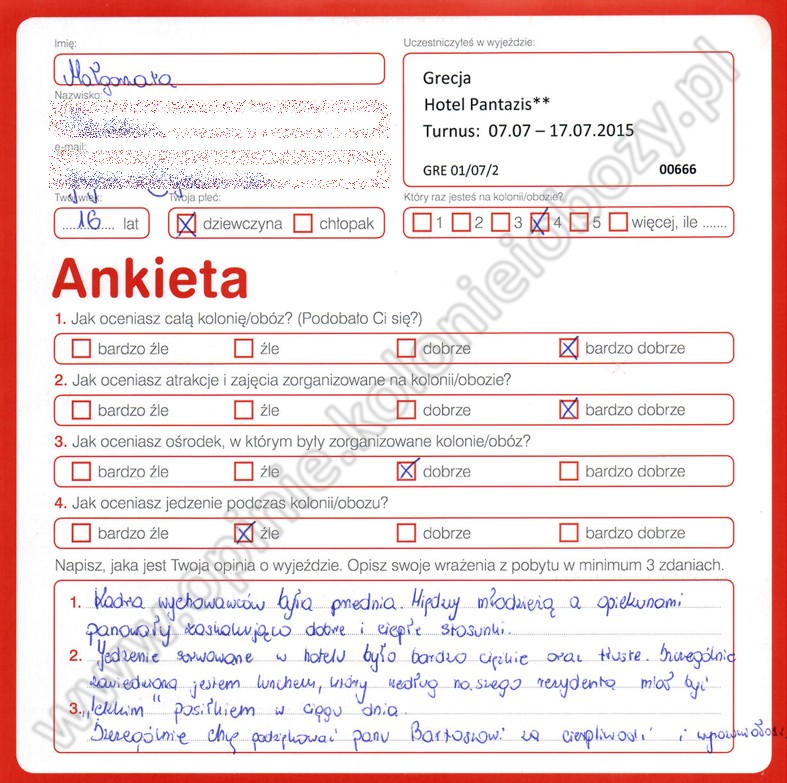 Imię:
Małgorzata
Nazwisko:
e-mail:
Twój wiek:
16 lat
Twoja płeć:
dziewczyna chłopak
Uczestniczyłeś w wyjeździe:
Grecja
Hotel Pantazis**
Turnus: 07.07 – 17.07.2015
GRE 01/07/2 00666
Który raz jesteś na kolonii/obozie?
1 2 3 4 5 więcej, ile .......
Ankieta
1. Jak oceniasz całą kolonię/obóz? (Podobało Ci się?)
bardzo źle źle dobrze bardzo dobrze
2. Jak oceniasz atrakcje i zajęcia zorganizowane na kolonii/obozie?
bardzo źle źle dobrze bardzo dobrze
3. Jak oceniasz ośrodek, w którym były zorganizowane kolonie/obóz?
bardzo źle źle dobrze bardzo dobrze
4. Jak oceniasz jedzenie podczas kolonii/obozu?
bardzo źle źle dobrze bardzo dobrze
Napisz, jaka jest Twoja opinia o wyjeździe. Opisz swoje wrażenia z pobytu w minimum 3 zdaniach.
1. Kadra wychowawców była przednia. Między młodzieżą a opiekunami
panowały zaskakująco dobre i ciepłe stosunki.
2. Jedzenie serwowane w hotelu było bardzo ciężkie oraz tłuste. Szczególnie
zawiedziona jestem lunchem, który według naszego rezydenta miał być
3. "lekkim" posiłkiem w ciągu dnia.
Szczególnie chcę podziękować panu Bartoszowi za cierpliwość i wyrozumiałość
www.opinie.kolonieiobozy.pl